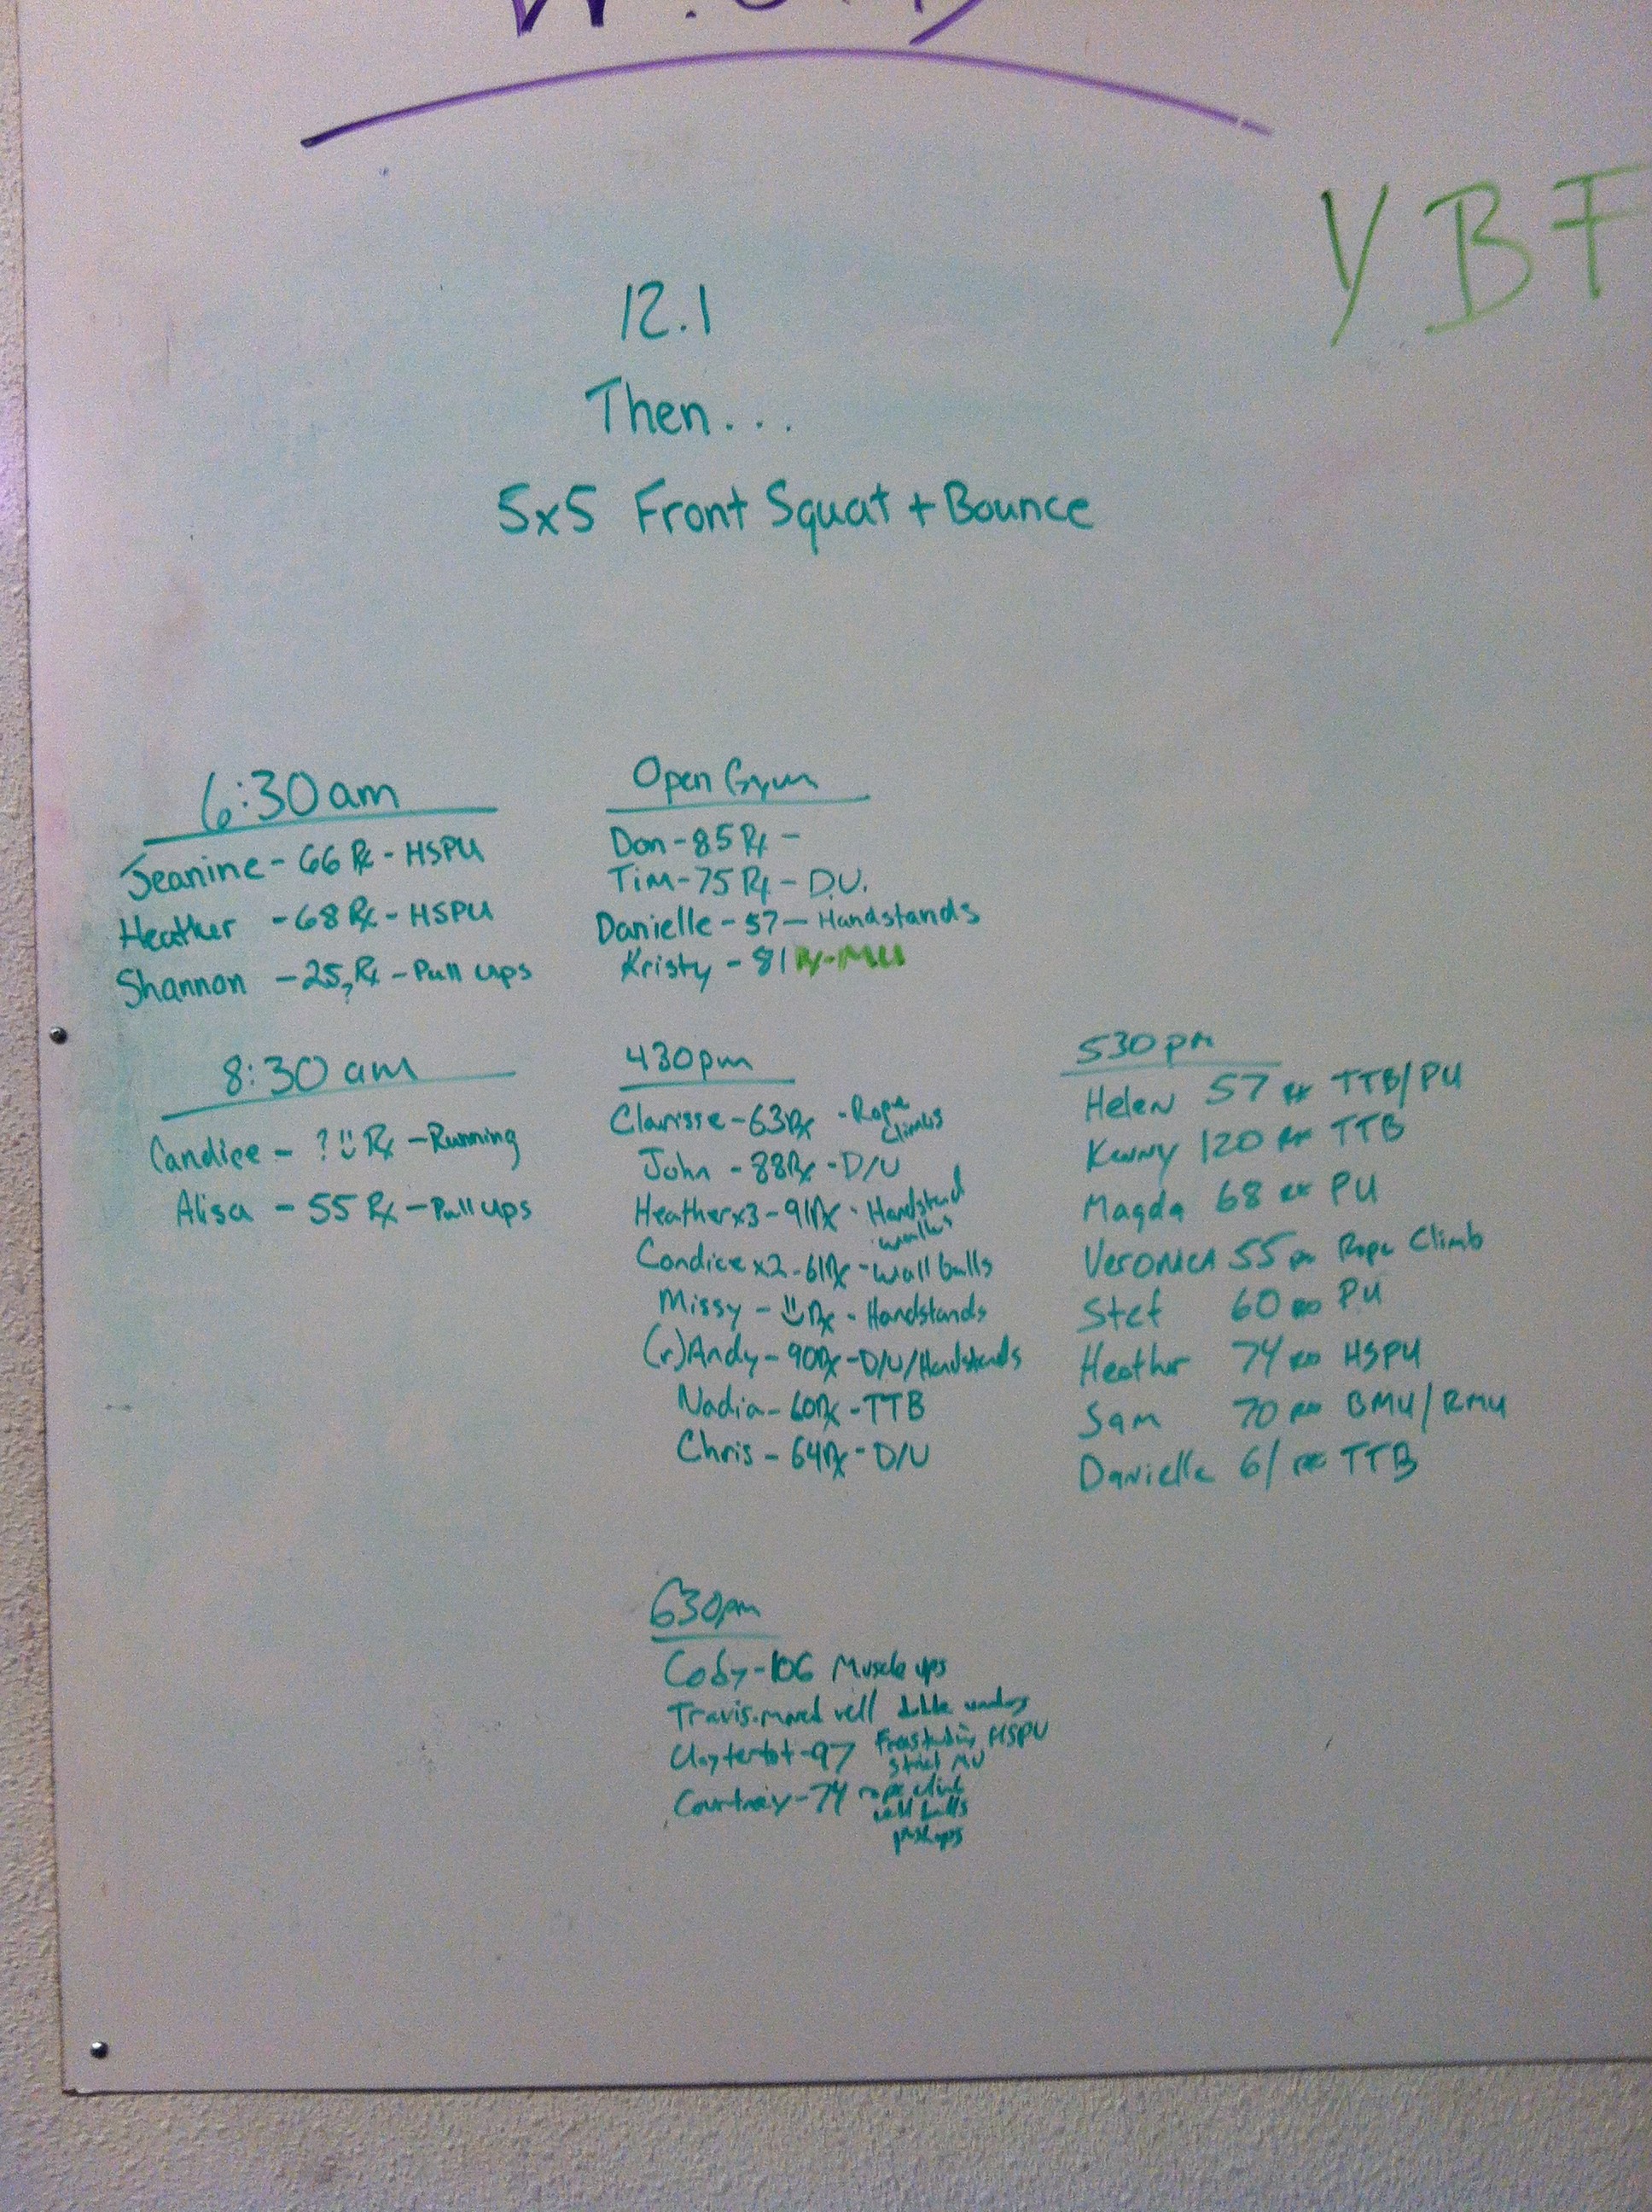 W.O.D
YBF
12.1
Then...
5x5 Front Squat + Bounce
6:30am
Jeanine - 66 Rx - HSPU
Heather - 68 Rx - HSPU
Shannon - 25, Rx - Pull ups
Open Gym
Don - 85 Rx -
Tim - 75 Rx - D.U.
Danielle - 57 - Handstands
Kristy - 81 Rx - MU
8:30 am
Candice - ? Rx - Running
Alisa - 55 Rx - Pull ups
430pm
Clarisse - 63Rx - Rope
Climbs
John - 88Rx - D/U
Heather x3 - 91Rx - Handstand
walks
Candice x2 - 61Rx - wall balls
Missy - Rx - Handstands
(r)Andy - 90Rx - D/U/Handstands
Nadia - 60Rx - TTB
Chris - 64Rx - D/U
530pm
Helen 57 Rx TTB/PU
Kenny 120 Rx TTB
Magda 68 Rx PU
Veronica 55 Rx Rope Climb
Stef 60 PU
Heather 74 HSPU
Sam 70 BMU/RMU
Danielle 61 Rx TTB
630pm
Coby - 106 Muscle ups
Travis - moved well double unders
Claytertot - 97 Freestanding HSPU
Strict MU
Courtney - 74 rope climb
wall balls
push ups